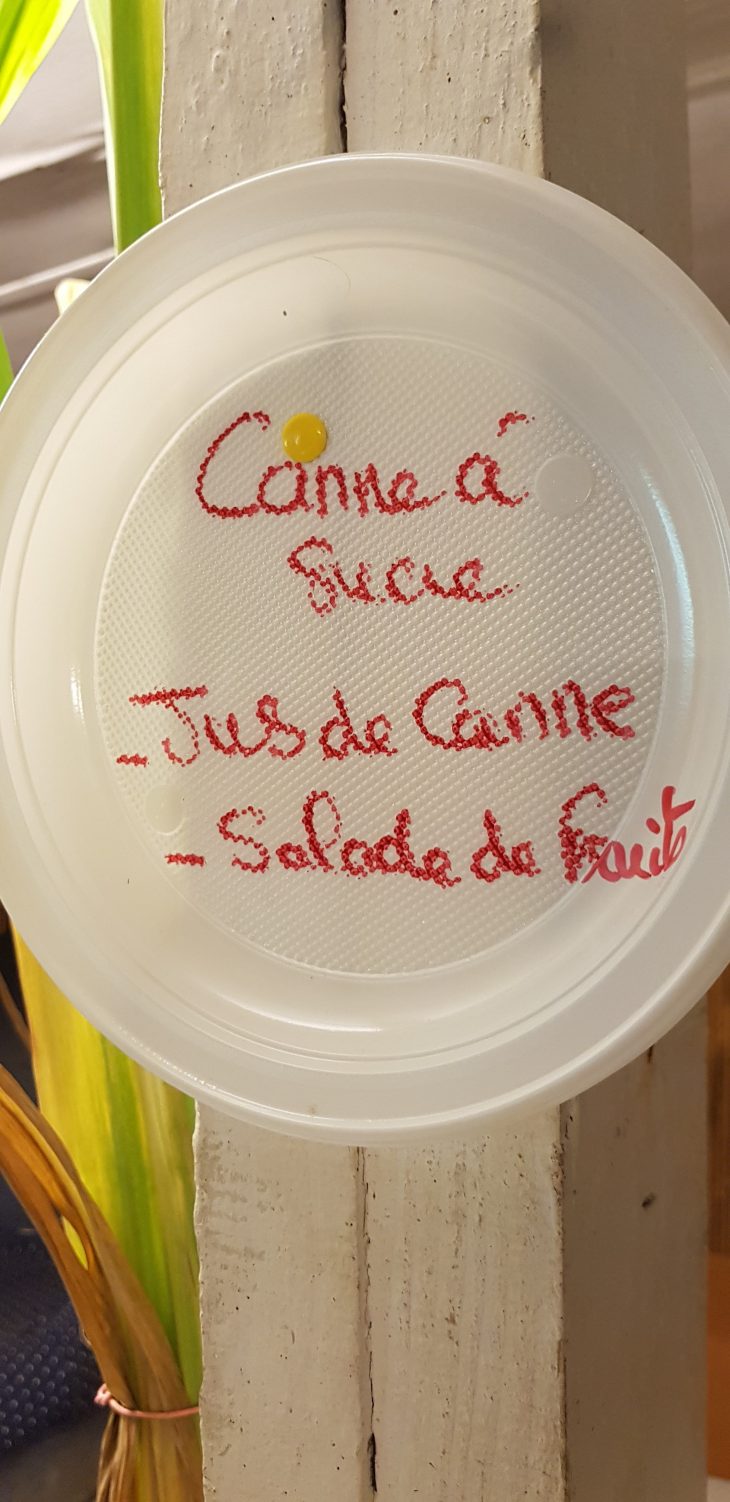 Canne á
Sucre
- Jus de Canne
- Salade de fruits